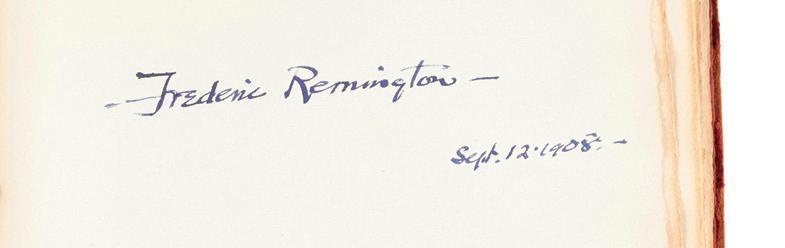 – Frederic Remington –
Sept. 12 • 1908. –